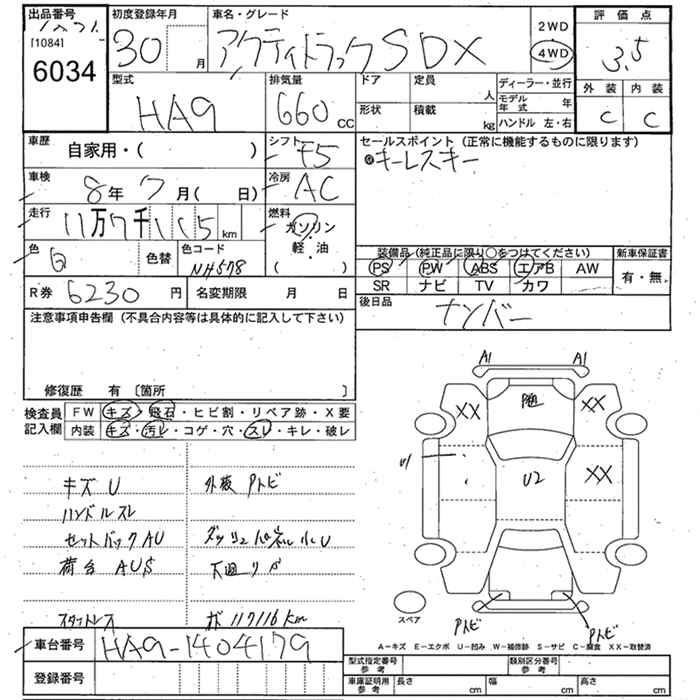 出品番号
[1084]
6034
初度登録年月
30 月
車名・グレード
アクティトラック SDX
2WD
4WD
評価点
3.5
外装 内装
C C
型式
HA9
排気量
660 CC
ドア
定員
人
形状
積載
kg
ディーラー・並行
モデル年式 年
ハンドル 左・右
車歴
自家用・( )
シフト
F5
セールスポイント (正常に機能するものに限ります)
キーレスキー
車検
8年7月( 日)
冷房
AC
走行
11万7千115km
燃料
ガソリン
軽・油
( )
色
白
色替
色コード
NH578
装備品 (純正品に限り○をつけてください)
新車保証書
PS PW ABS エアB AW
SR ナビ TV カワ
有・無
R券 6230円
名変期限 月 日
後日品
ナンバー
注意事項申告欄 (不具合内容等は具体的に記入して下さい)
修復歴 有 〔箇所 〕
検査員記入欄
FW キズ・飛石・ヒビ割・リペア跡・X要
内装 キズ・汚レ・コゲ・穴・スレ・キレ・破レ
キズ U
外板 Pトビ
ハンドルスレ
セットバックAU
荷台 AUS
下廻りサ
スタットレス
117116km
A1 A1
XX XX
XX
U2
Pトビ Pトビ
スペア
A-キズ E-エクボ U-凹み W-補修跡 S-サビ C-腐食 XX-取替済
車台番号
HA9-1404179
登録番号
型式指定番号 参考
類別区分番号 参考
車庫証明用 参考
長さ cm
幅 cm
高さ cm